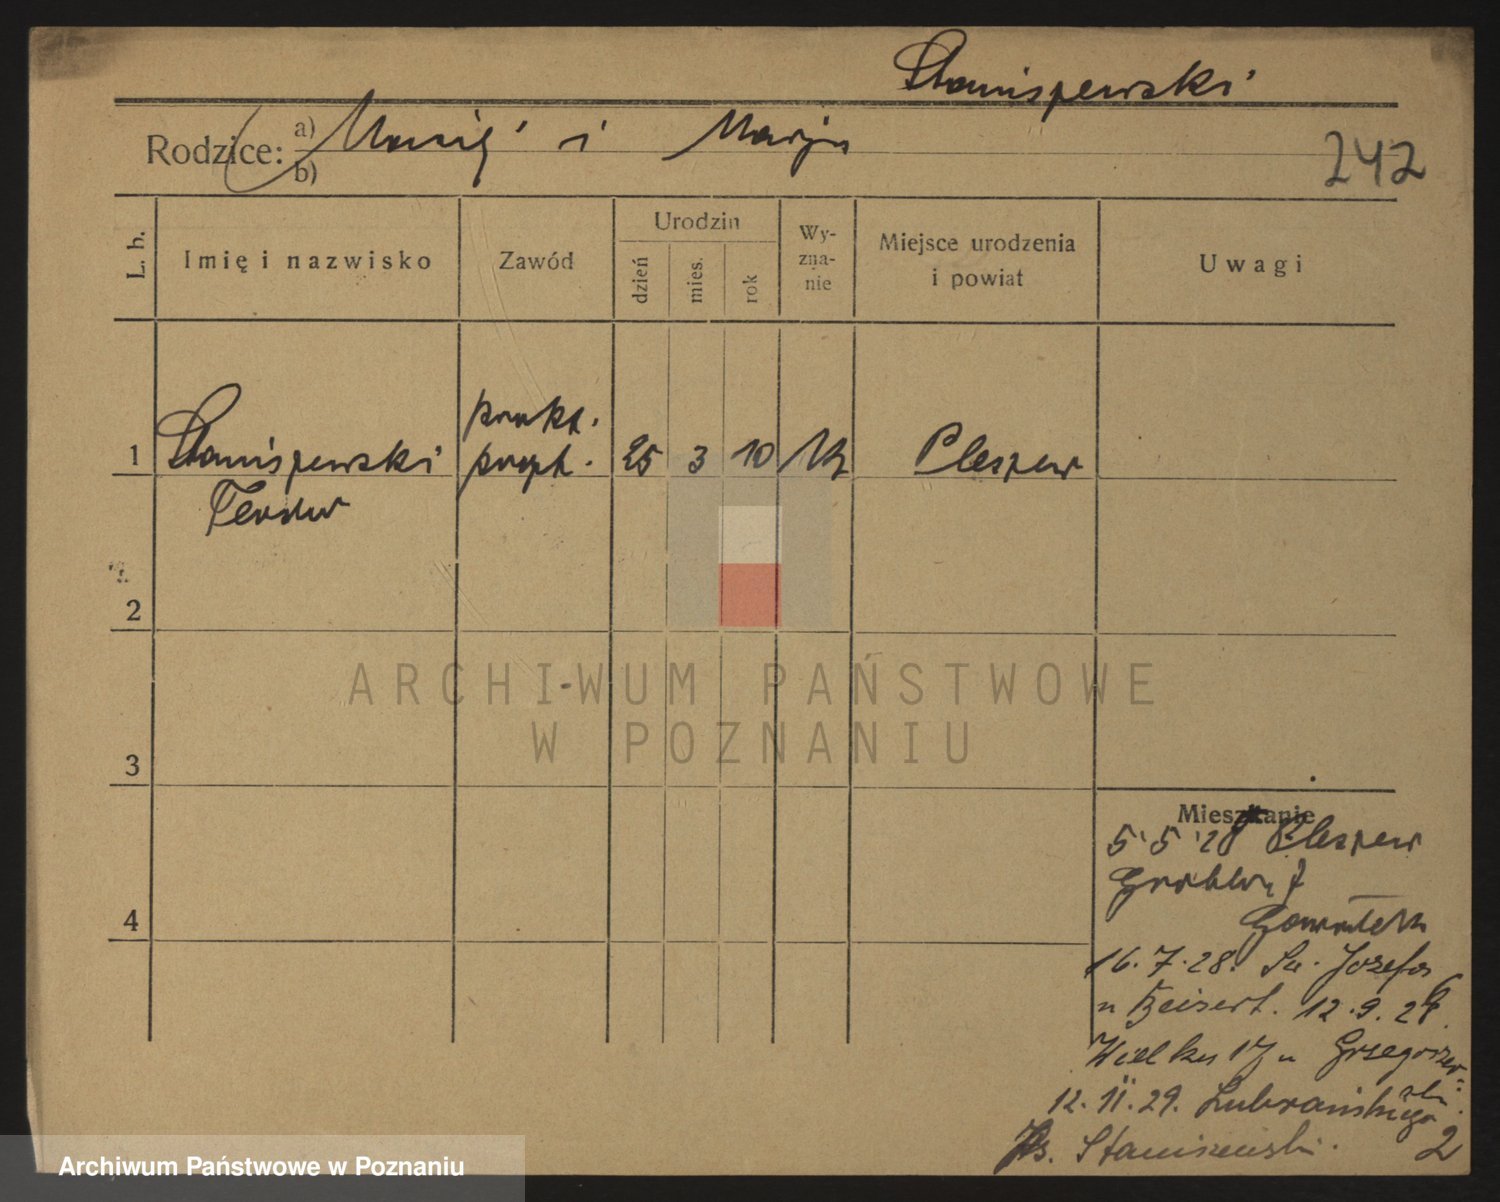 Staniszewski
Rodzice: a) Maciej i Marja
b)
242
L. b.
Imię i nazwisko
Zawód
Urodzin
dzień
mies.
rok
Wy-
zna-
nie
Miejsce urodzenia
i powiat
Uwagi
1 Staniszewski prakt. 25 3 10 Pleszew
Teodor
2
3
4
ARCHIWUM PAŃSTWOWE
W POZNANIU
Mieszkanie
5.5.28 Pleszew
16.7.28. Św. Józefa
u Beisert. 12.9.28.
Wielka 17 u Grzegorzew-
ski.
12.11.29. Lubrańskiego 2
Staniszewski.
Archiwum Państwowe w Poznaniu